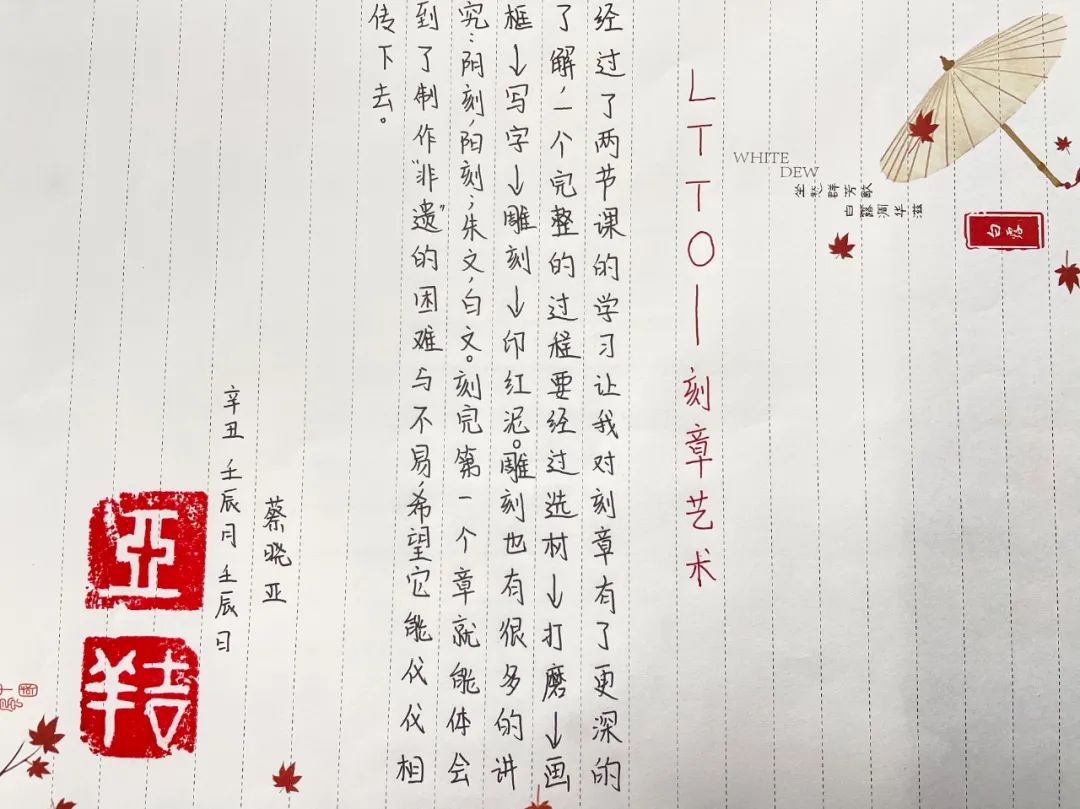 WHITE
DEW
坐愁群芳歇
白露凋华滋
白露
LTTO|刻章艺术
经过了两节课的学习让我对刻章有了更深的
了解,一个完整的过程要经过选材↓打磨↓画
框↓写字↓雕刻↓印红泥。雕刻也有很多的讲
究:阳刻,阳刻;朱文,白文。刻完第一个章就能体会
到了制作“非遗”的困难与不易,希望它能代代相
传下去。
蔡晓亚
辛丑 壬辰月 壬辰日
亞
吉羊